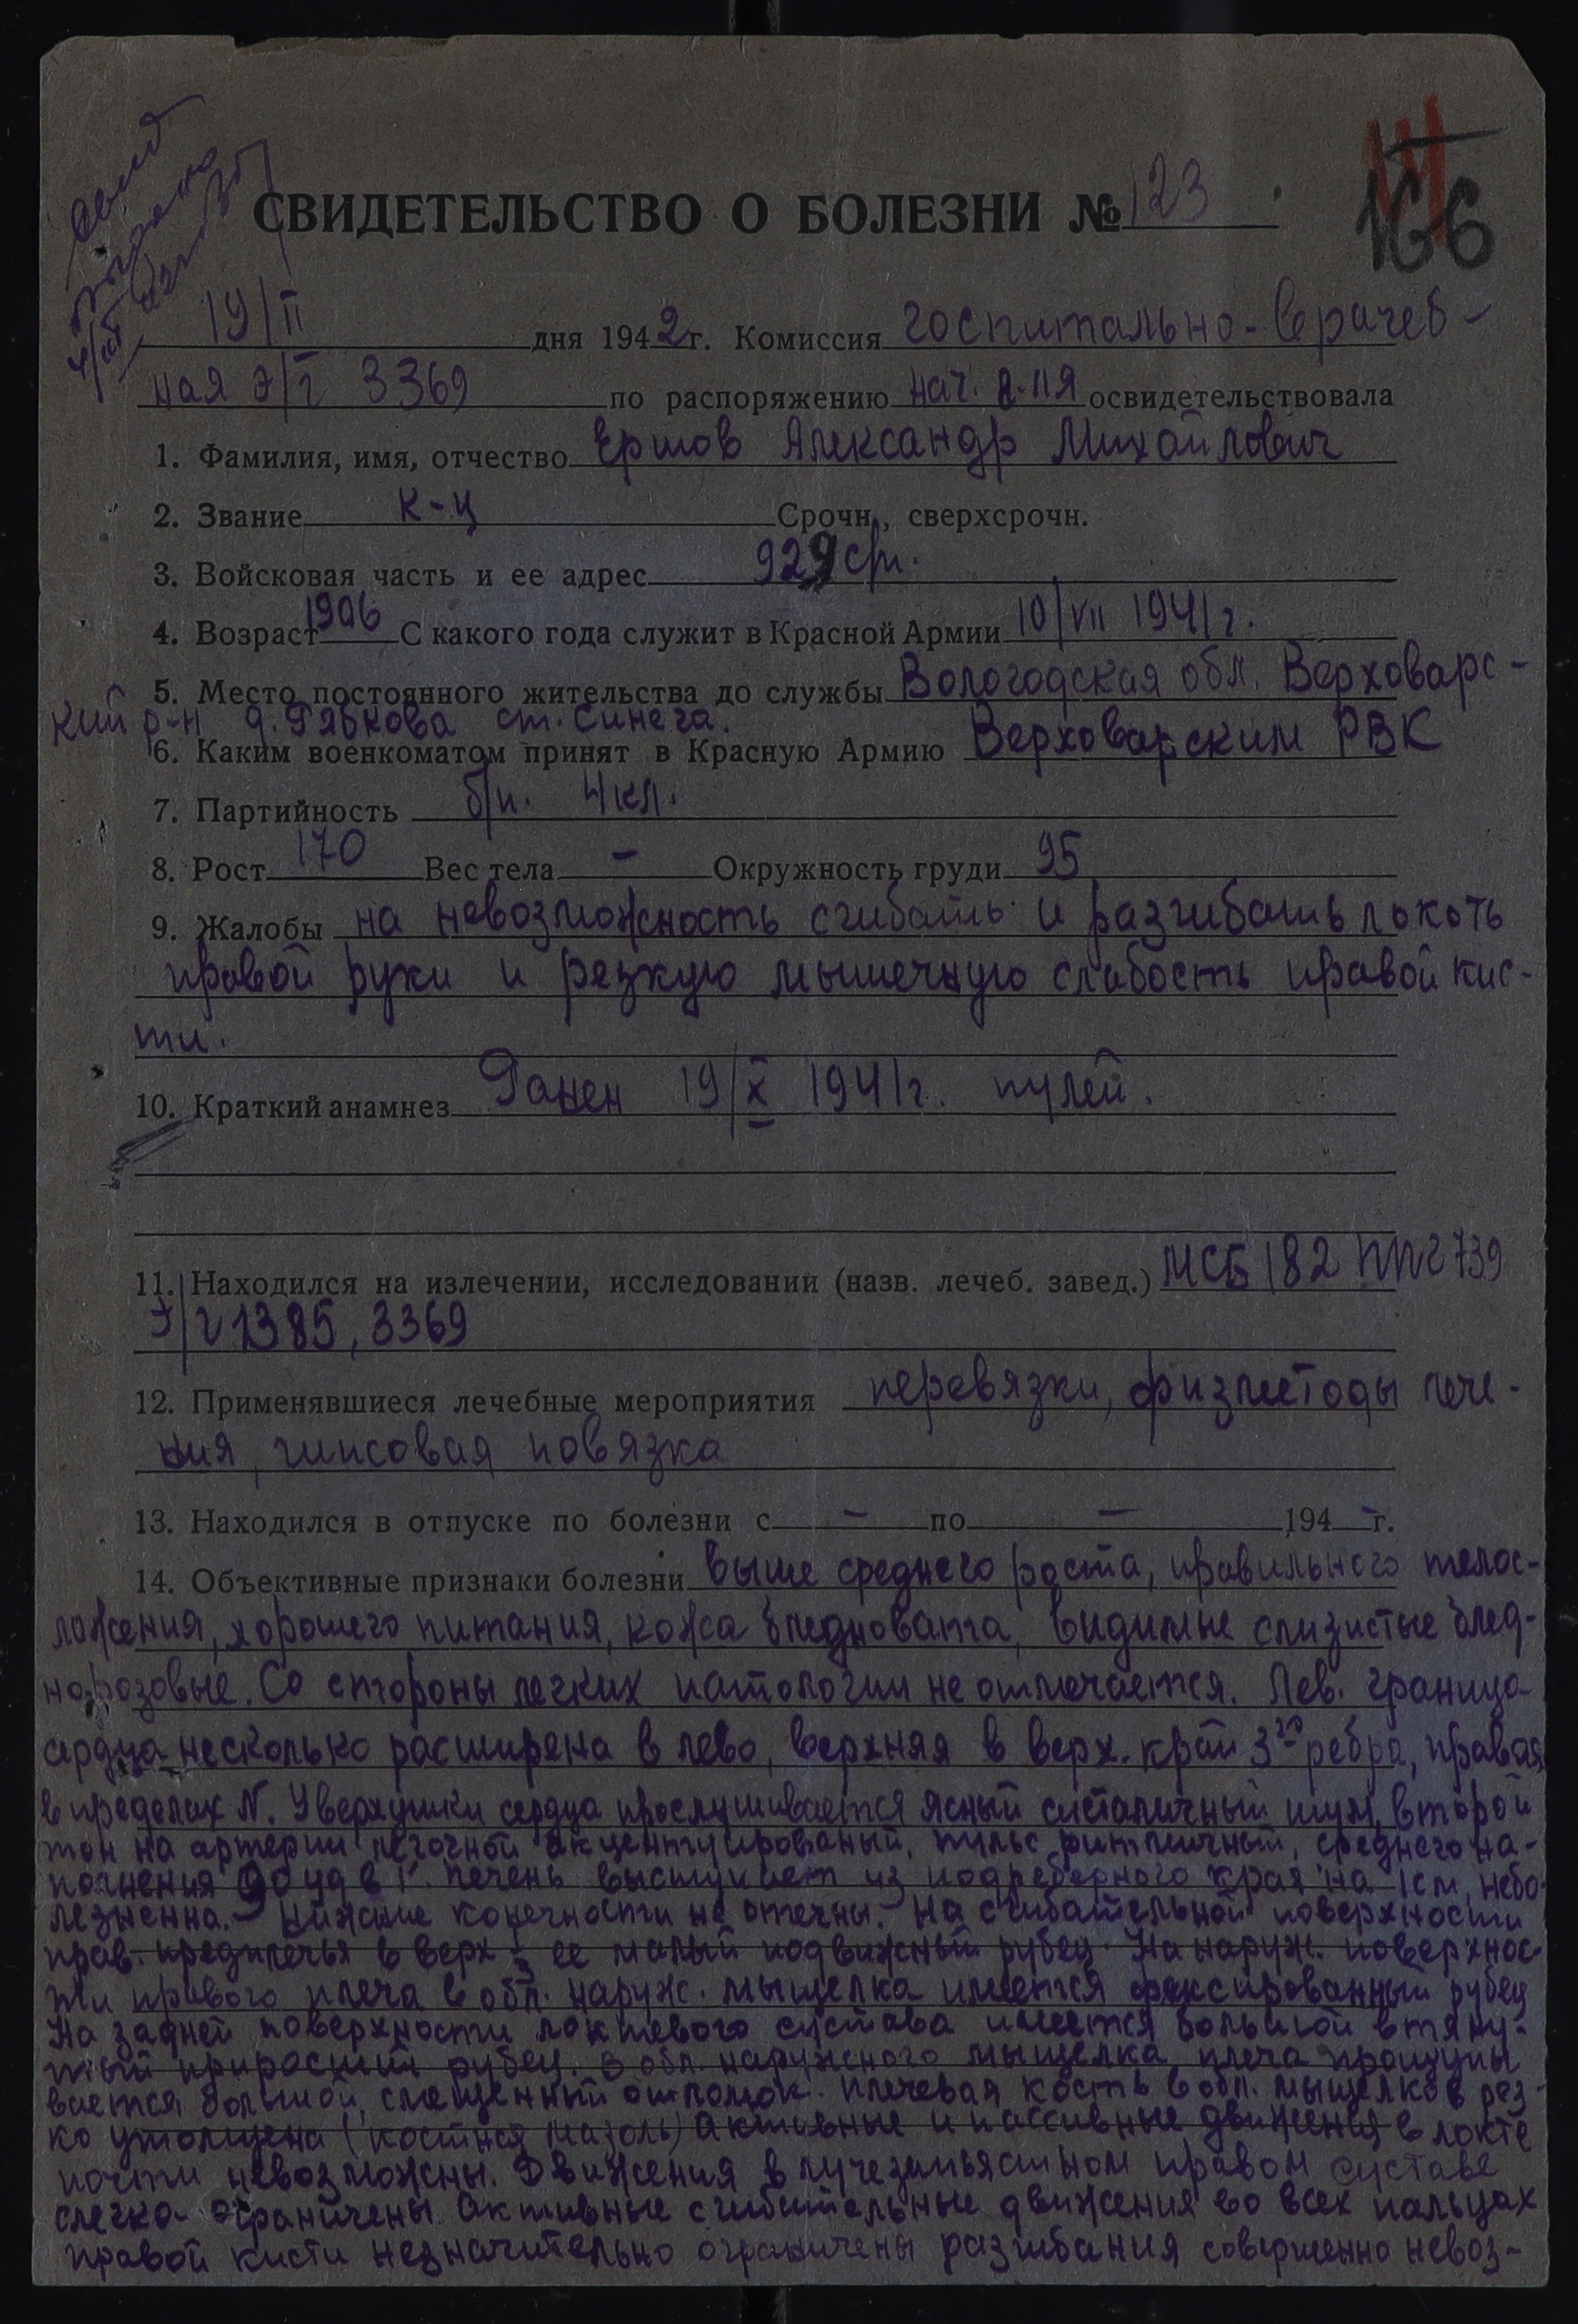 166
СВИДЕТЕЛЬСТВО О БОЛЕЗНИ № 123
19/II дня 1942 г. Комиссия госпитально-врачеб-
ная э/г 3369 по распоряжению нач. г-ля освидетельствовала
1. Фамилия, имя, отчество Ершов Александр Михайлович
2. Звание к-ц Срочн., сверхсрочн.
3. Войсковая часть и ее адрес 929 сп.
4. Возраст 1906 С какого года служит в Красной Армии 10/VII 1941 г.
5. Место постоянного жительства до службы Вологодская обл. Верховарс-
кий р-н д. Рябкова ст. Синега.
6. Каким военкоматом принят в Красную Армию Верховарским РВК
7. Партийность б/п. 4 кл.
8. Рост 170 Вес тела – Окружность груди 95
9. Жалобы на невозможность сгибать и разгибать локоть
правой руки и резкую мышечную слабость правой кис-
ти.
10. Краткий анамнез Ранен 19/X 1941 г. пулей.
11. Находился на излечении, исследовании (назв. лечеб. завед.) МСБ 182 ППГ 739
Э/г 1385, 3369
12. Применявшиеся лечебные мероприятия перевязки, физметоды лече-
ния, гипсовая повязка
13. Находился в отпуске по болезни с – по – 194 – г.
14. Объективные признаки болезни Выше среднего роста, правильного телос-
ложения, хорошего питания, кожа бледновата, видимые слизистые блед-
норозовые. Со стороны легких патологии не отмечается. Лев. граница
сердца несколько расширена в лево, верхняя в верх. край 3го ребра, правая
в пределах N. У верхушки сердца прослушивается ясный систаличный шум, второй
тон на артерии легочной акцентуированый, пульс ритмичный, среднего на-
полнения 90 уд в 1'. Печень выступает из подреберного края на 1 см, небо-
лезненна. Нижние конечности не отечны. На сгибательной поверхности
прав. предплечья в верх ⅓ ее малый подвижный рубец. На наруж. поверхнос-
ти правого плеча в обл. наруж. мыщелка имеется фиксированный рубец
На задней поверхности локтевого сустава имеется большой втяну-
тый приросший рубец. В обл. наружного мыщелка плеча прощупы
вается большой, смещенный отломок. Плечевая кость в обл. мыщелков рез-
ко утолщена (костная мазоль) Активные и пассивные движения в локте
почти невозможны. Движения в лучезапьястном правом суставе
слегка ограничены. Активные сгибательные движения во всех пальцах
правой кисти незначительно ограничены разгибания совершенно невоз-